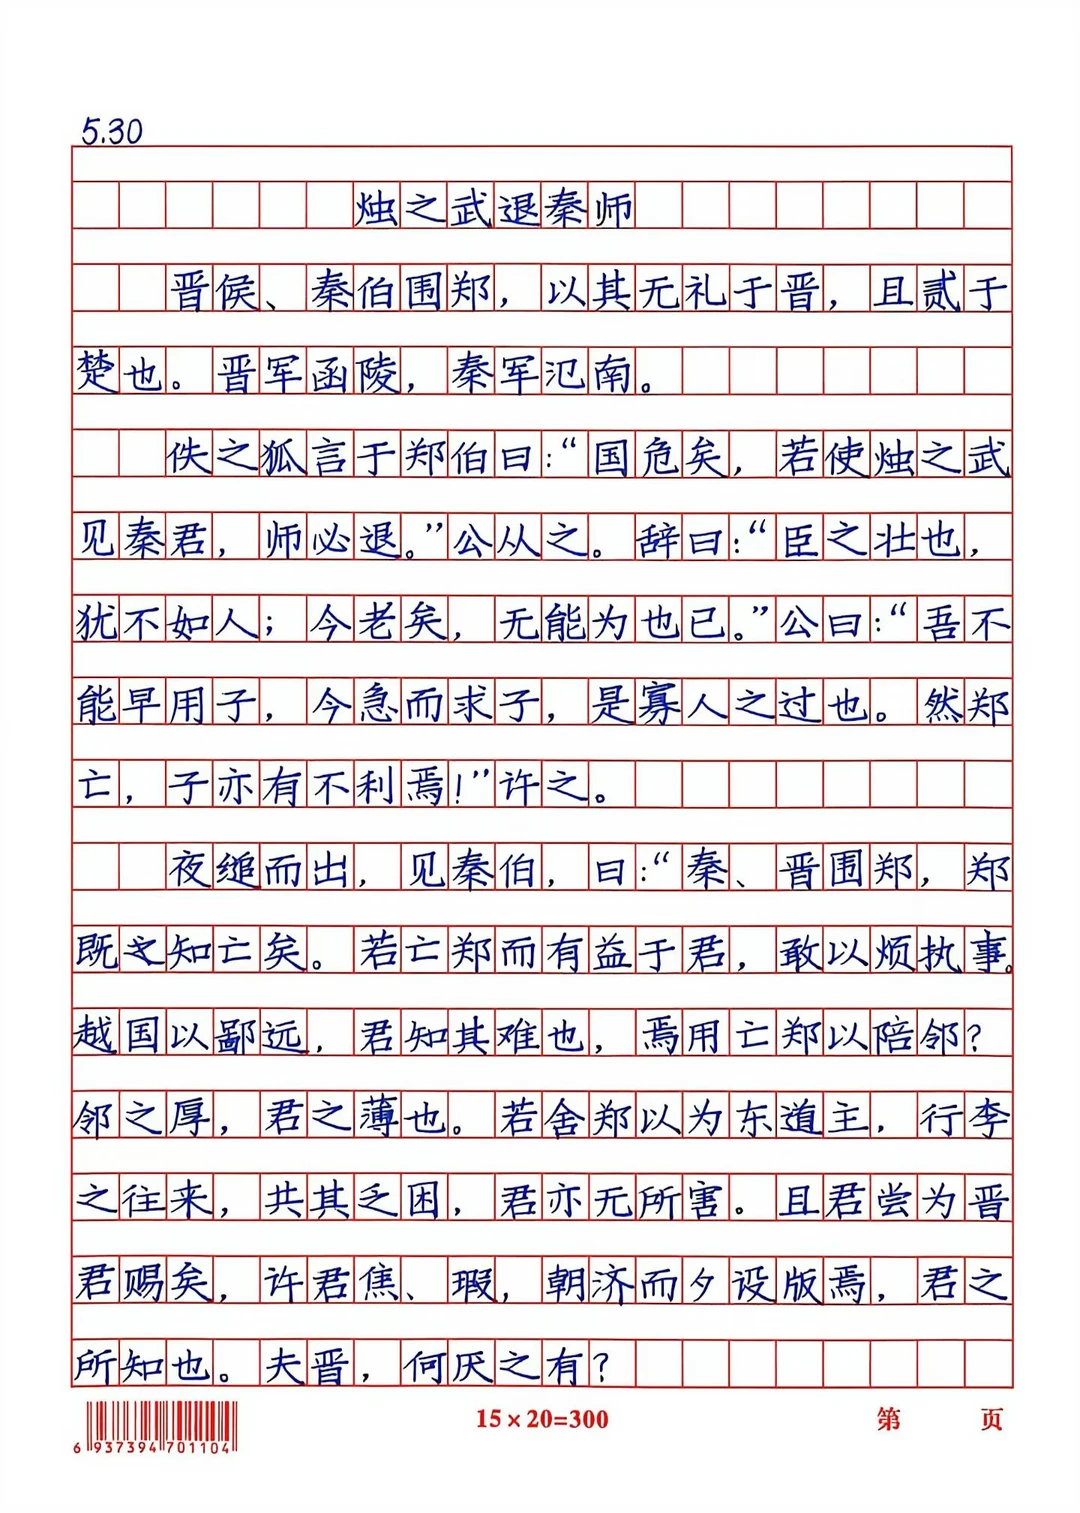 5.30
烛之武退秦师
晋侯、秦伯围郑，以其无礼于晋，且贰于
楚也。晋军函陵，秦军氾南。
佚之狐言于郑伯曰：“国危矣，若使烛之武
见秦君，师必退。”公从之。辞曰：“臣之壮也，
犹不如人；今老矣，无能为也已。”公曰：“吾不
能早用子，今急而求子，是寡人之过也。然郑
亡，子亦有不利焉！”许之。
夜缒而出，见秦伯，曰：“秦、晋围郑，郑
既知亡矣。若亡郑而有益于君，敢以烦执事。
越国以鄙远，君知其难也，焉用亡郑以陪邻？
邻之厚，君之薄也。若舍郑以为东道主，行李
之往来，共其乏困，君亦无所害。且君尝为晋
君赐矣，许君焦、瑕，朝济而夕设版焉，君之
所知也。夫晋，何厌之有？
6 937394 701104
15×20=300
第 页